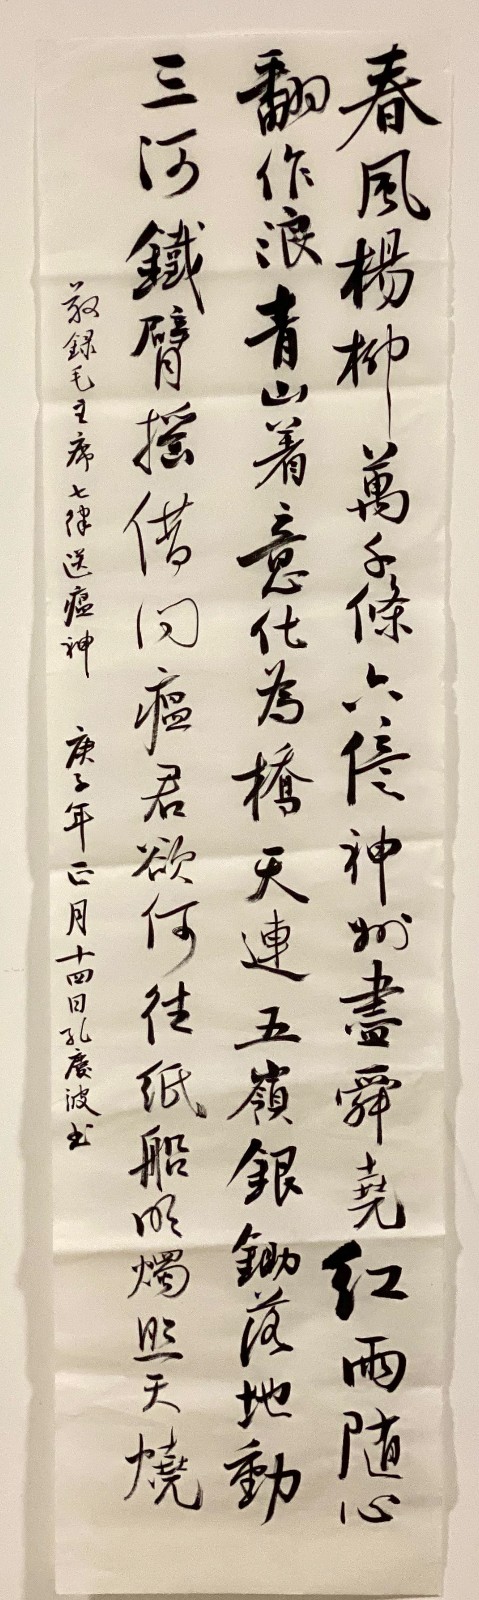 春風楊柳萬千條六億神州盡舜堯紅雨随心
翻作浪青山着意化為橋天連五嶺銀鋤落地動
三河鐵臂摇借问瘟君欲何往紙船明燭照天燒
敬録毛主席七律送瘟神 庚子年正月十四日孔慶波书